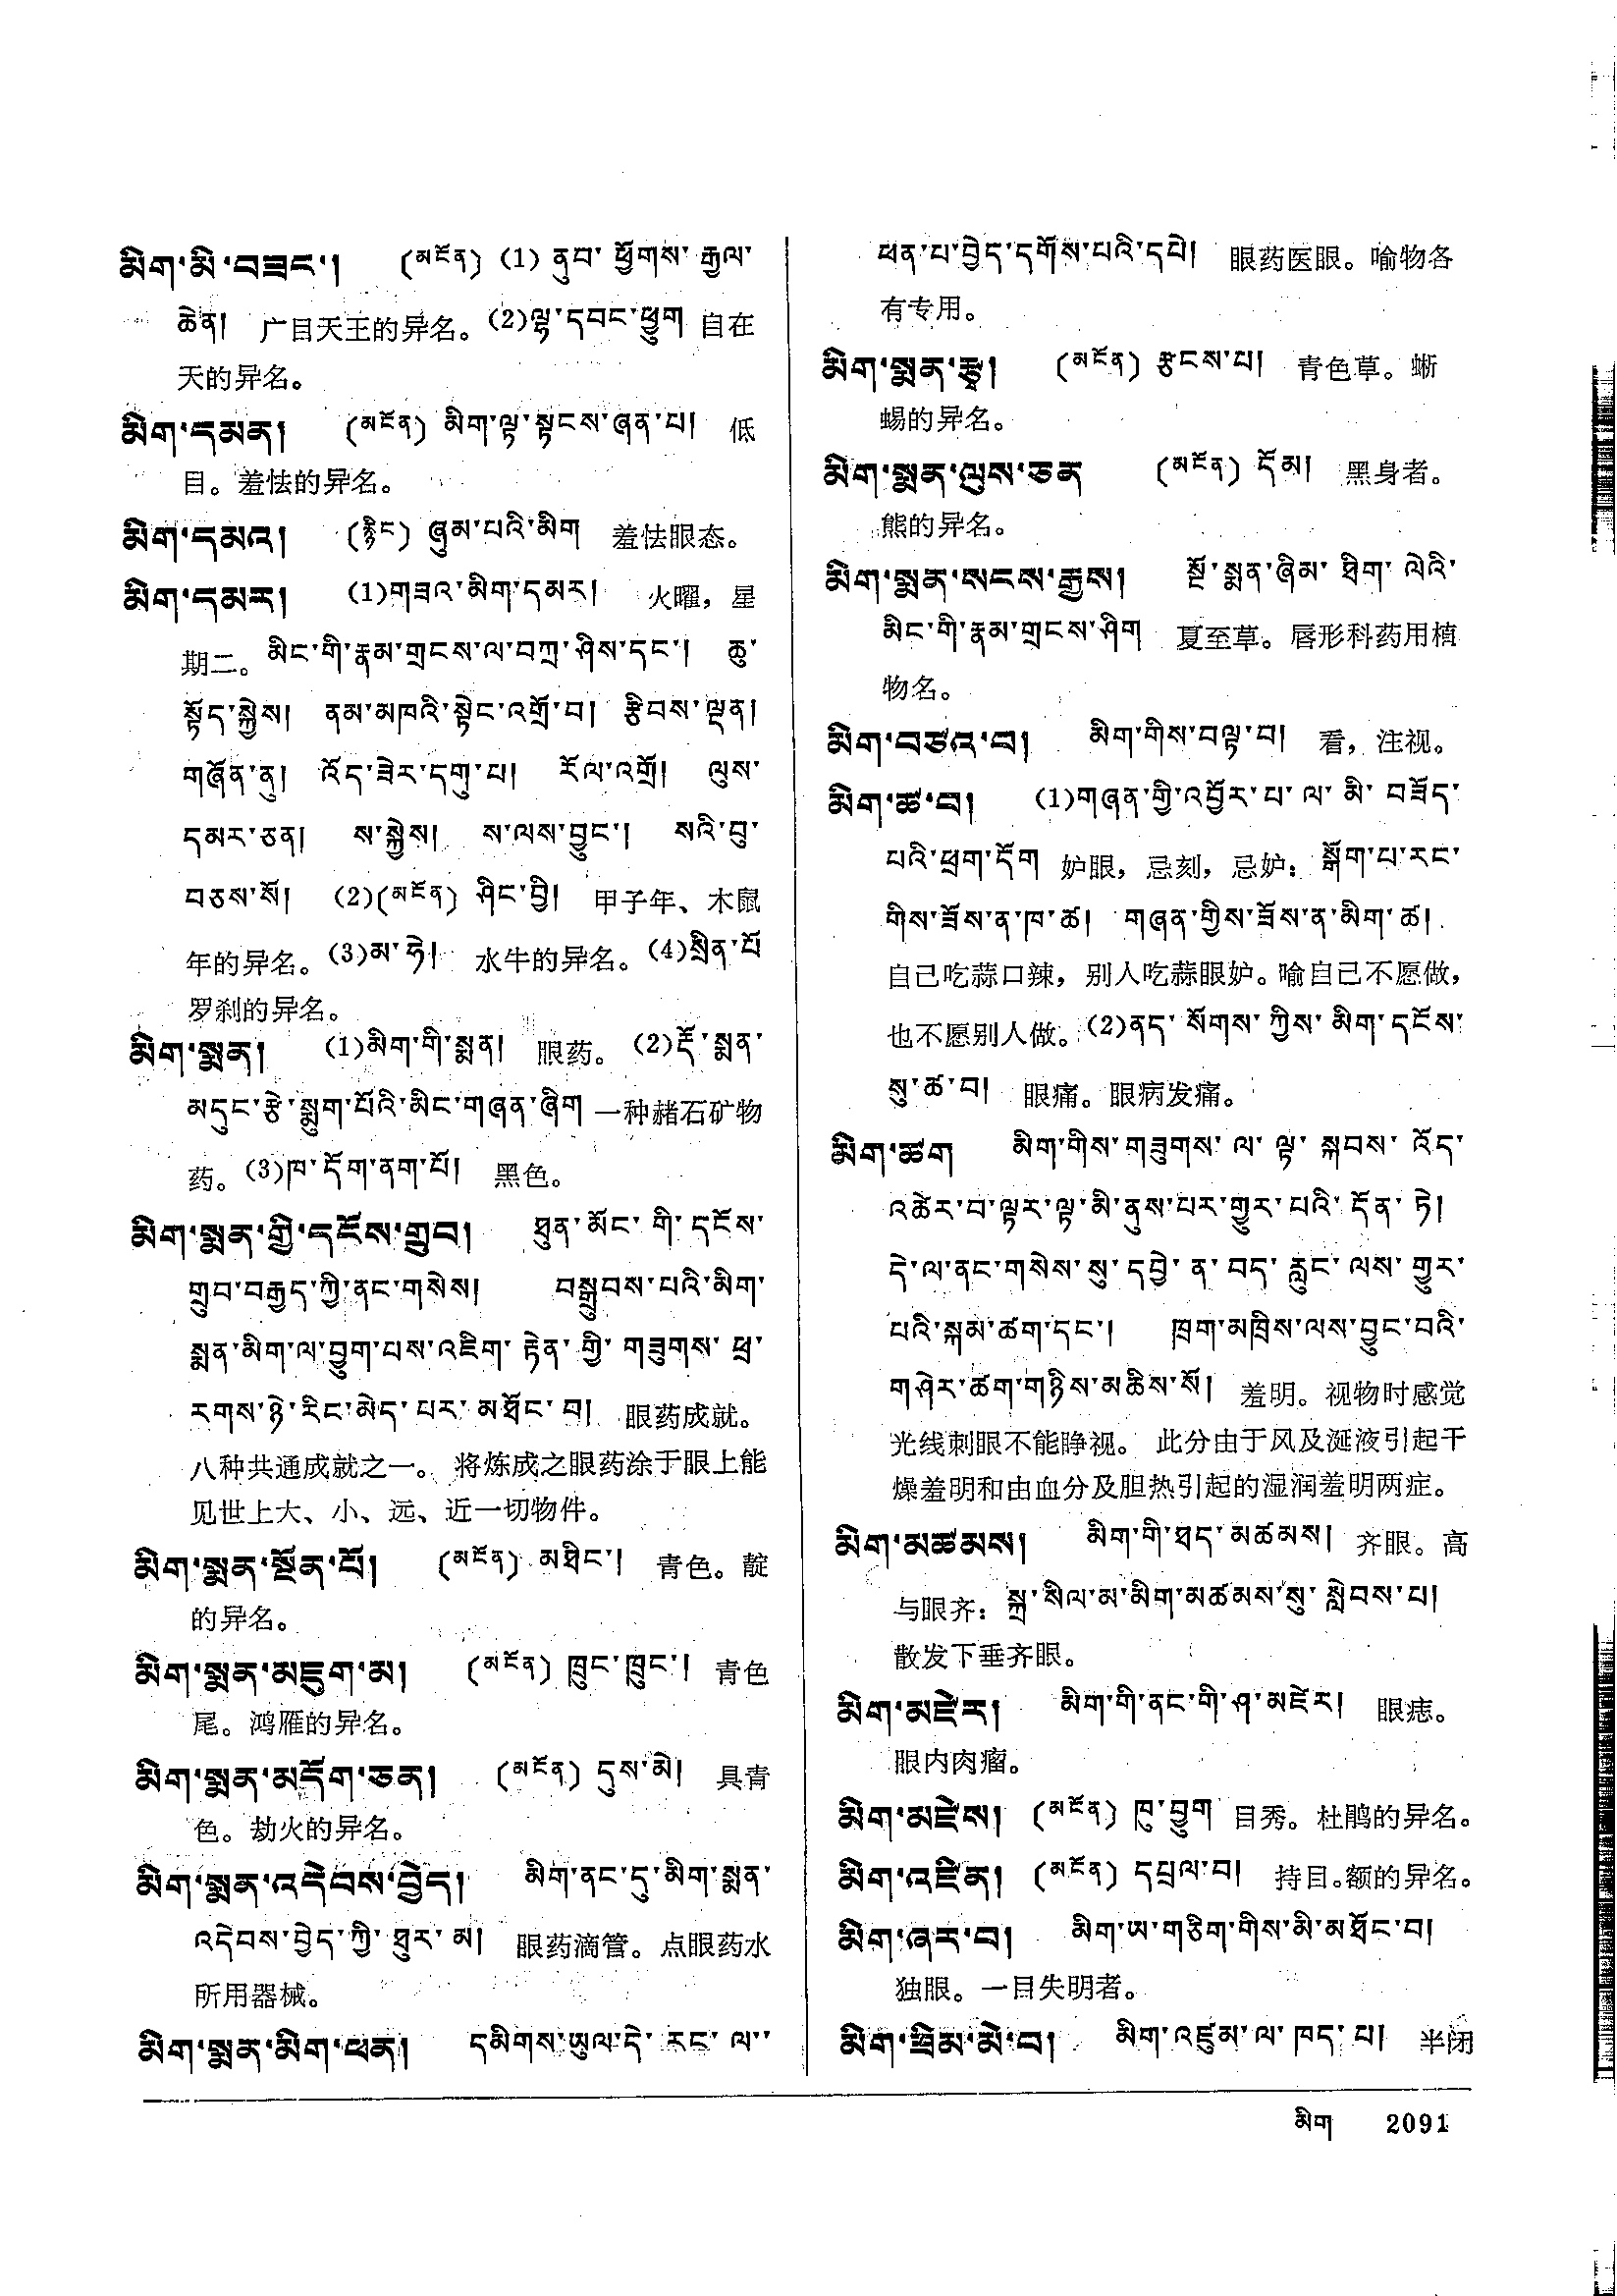 མིག་མི་བཟང་། (མངོན) (1) ནུབ་ ཕྱོགས་ རྒྱལ་
ཆེན། 广目天王的异名。(2)ལྷ་དབང་ཕྱུག 自在
天的异名。
མིག་དམན། (མངོན) མིག་ལྟ་སྟངས་ཞན་པ། 低
目。羞怯的异名。
མིག་དམའ། (རྙིང) ཞུམ་པའི་མིག 羞怯眼态。
མིག་དམར། (1)གཟའ་མིག་དམར། 火曜，星
期二。མིང་གི་རྣམ་གྲངས་ལ་བཀྲ་ཤིས་དང་། ཆུ་
སྟོད་སྐྱེས། ནམ་མཁའི་སྟེང་འགྲོ་བ། རྩིབས་ལྡན།
གཞོན་ནུ། འོད་ཟེར་དགུ་པ། རོལ་འགྲོ། ལུས་
དམར་ཅན། ས་སྐྱེས། ས་ལས་བྱུང་། སའི་བུ་
བཅས་སོ། (2)(མངོན) ཤིང་བྱི། 甲子年、木鼠
年的异名。(3)མ་ཧེ། 水牛的异名。(4)སྲིན་པོ
罗刹的异名。
མིག་སྨན། (1)མིག་གི་སྨན། 眼药。(2)རྡོ་སྨན་
མདུང་རྩེ་སྨུག་པོའི་མིང་གཞན་ཞིག 一种赭石矿物
药。(3)ཁ་དོག་ནག་པོ། 黑色。
མིག་སྨན་གྱི་དངོས་གྲུབ། ཐུན་མོང་ གི་ དངོས་
གྲུབ་བརྒྱད་ཀྱི་ནང་གསེས། བསྒྲུབས་པའི་མིག་
སྨན་མིག་ལ་བྱུག་པས་འཇིག་ རྟེན་ གྱི་ གཟུགས་ ཕྲ་
རགས་ཉེ་རིང་མེད་པར་མཐོང་བ། 眼药成就。
八种共通成就之一。将炼成之眼药涂于眼上能
见世上大、小、远、近一切物件。
མིག་སྨན་སྔོན་པོ། (མངོན) མཐིང་། 青色。靛
的异名。
མིག་སྨན་མཇུག་མ། (མངོན) ཁྲུང་ཁྲུང་། 青色
尾。鸿雁的异名。
མིག་སྨན་མདོག་ཅན། (མངོན) དུས་མེ། 具青
色。劫火的异名。
མིག་སྨན་འདེབས་བྱེད། མིག་ནང་དུ་མིག་སྨན་
འདེབས་བྱེད་ཀྱི་ ཐུར་ མ། 眼药滴管。点眼药水
所用器械。
མིག་སྨན་མིག་ཕན། དམིགས་ཡུལ་དེ་ རང་ ལ་
ཕན་པ་བྱེད་དགོས་པའི་དཔེ། 眼药医眼。喻物各
有专用。
མིག་སྨན་རྩྭ། (མངོན) རྩངས་པ། 青色草。蜥
蜴的异名。
མིག་སྨན་ལུས་ཅན (མངོན) དོམ། 黑身者。
熊的异名。
མིག་སྨན་སངས་རྒྱས། སྔོ་སྨན་ཞིམ་ ཐིག་ ལེའི་
མིང་གི་རྣམ་གྲངས་ཤིག 夏至草。唇形科药用植
物名。
མིག་བཙའ་བ། མིག་གིས་བལྟ་བ། 看，注视。
མིག་ཚ་བ། (1)གཞན་གྱི་འབྱོར་པ་ ལ་ མི་ བཟོད་
པའི་ཕྲག་དོག 妒眼，忌刻，忌妒：སྒོག་པ་རང་
གིས་ཟོས་ན་ཁ་ཚ། གཞན་གྱིས་ཟོས་ན་མིག་ཚ།
自己吃蒜口辣，别人吃蒜眼妒。喻自己不愿做，
也不愿别人做。(2)ནད་ སོགས་ ཀྱིས་ མིག་ དངོས་
སུ་ཚ་བ། 眼痛。眼病发痛。
མིག་ཚག མིག་གིས་ གཟུགས་ ལ་ ལྟ་ སྐབས་ འོད་
འཚེར་བ་ལྟར་ལྟ་མི་ནུས་པར་གྱུར་པའི་ དོན་ ཏེ།
དེ་ལ་ནང་གསེས་སུ་དབྱེ་ ན་ བད་ རླུང་ ལས་ གྱུར་
པའི་སྐམ་ཚག་དང་། ཁྲག་མཁྲིས་ལས་བྱུང་བའི་
གཤེར་ཚག་གཉིས་མཆིས་སོ། 羞明。视物时感觉
光线刺眼不能睁视。此分由于风及涎液引起干
燥羞明和由血分及胆热引起的湿润羞明两症。
མིག་མཚམས། མིག་གི་ཐད་མཚམས། 齐眼。高
与眼齐：སྐྲ་སིལ་མ་མིག་མཚམས་སུ་ སླེབས་པ།
散发下垂齐眼。
མིག་མཛེར། མིག་གི་ནང་གི་ཤ་མཛེར། 眼痣。
眼内肉瘤。
མིག་མཛེས། (མངོན) ཁུ་བྱུག 目秀。杜鹃的异名。
མིག་འཛིན། (མངོན) དཔྲལ་བ། 持目。额的异名。
མིག་ཞར་བ། མིག་ཨ་གཅིག་གིས་མི་མཐོང་བ།
独眼。一目失明者。
མིག་ཟིམ་མེ་བ། མིག་འཛུམ་ལ་ཁད་པ། 半闭
མིག 2091